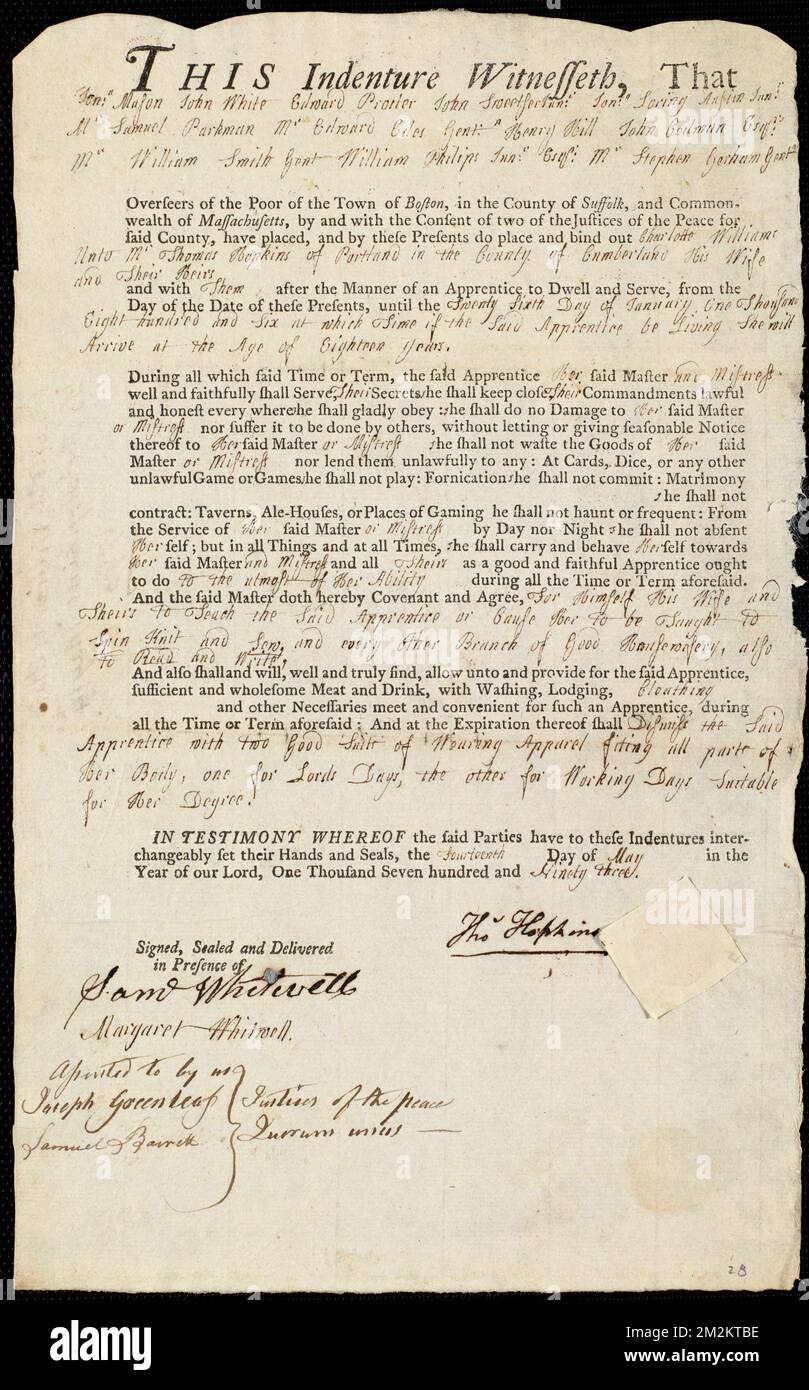 THIS Indenture Witneſſeth, That
Jonᵃ Mason John White Edward Procter John Sweetser Junʳ Jonᵃ Loring Austin Junʳ
Mʳ Samuel Parkman Mʳ Edward Edes Gentⁿ Henry Hill John Codman Esqʳˢ
Mʳ William Smith Gent William Philips Junʳ Esqʳ Mʳ Stephen Gorham Gent
Overſeers of the Poor of the Town of Boſton, in the County of Suffolk, and Common-
wealth of Maſſachuſetts, by and with the Conſent of two of the Juſtices of the Peace for
ſaid County, have placed, and by theſe Preſents do place and bind out Charlotte Williams
Unto Mʳ Thomas Hopkins of Portland in the County of Cumberland His Wife
and Their Heirs
and with Them after the Manner of an Apprentice to Dwell and Serve, from the
Day of the Date of theſe Preſents, until the Twenty Sixth Day of January One Thousand
Eight hundred and Six at which Time if the Said Apprentice be Living She will
Arrive at the Age of Eighteen Years.
During all which ſaid Time or Term, the ſaid Apprentice Her ſaid Maſter and Miſtreſs
well and faithfully ſhall Serve, Their Secrets she ſhall keep cloſe, Their Commandments lawful
and honeſt every where she ſhall gladly obey : she ſhall do no Damage to Her ſaid Maſter
or Miſtreſs nor ſuffer it to be done by others, without letting or giving ſeaſonable Notice
thereof to Her ſaid Maſter or Miſtreſs she ſhall not waſte the Goods of Her ſaid
Maſter or Miſtreſs nor lend them unlawfully to any : At Cards, Dice, or any other
unlawful Game or Games she ſhall not play : Fornication she ſhall not commit : Matrimony
she ſhall not
contract : Taverns, Ale-Houſes, or Places of Gaming he ſhall not haunt or frequent : From
the Service of Her ſaid Maſter or Miſtreſs by Day nor Night she ſhall not abſent
Her ſelf ; but in all Things and at all Times, she ſhall carry and behave Her ſelf towards
Her ſaid Maſter and Miſtreſs and all Theirs as a good and faithful Apprentice ought
to do to the utmost of Her Ability during all the Time or Term aforeſaid.
And the ſaid Maſter doth hereby Covenant and Agree, For Himself His Wife and
Theirs to Teach the Said Apprentice or Cause Her to be Taught to
Spin Knit and Sew, and every other Branch of Good Housewifery, also
to Read and Write,
And alſo ſhall and will, well and truly find, allow unto and provide for the ſaid Apprentice,
ſufficient and wholeſome Meat and Drink, with Waſhing, Lodging, Cloathing
and other Neceſſaries meet and convenient for ſuch an Apprentice, during
all the Time or Term aforeſaid : And at the Expiration thereof ſhall Dismiss the Said
Apprentice with two Good Suits of Wearing Apparel fiting all parts of
Her Body, one for Lords Days, the other for Working Days Suitable
for Her Degree.
IN TESTIMONY WHEREOF the ſaid Parties have to theſe Indentures inter-
changeably ſet their Hands and Seals, the Fourteenth Day of May in the
Year of our Lord, One Thouſand Seven hundred and Ninety three.
Thoˢ Hopkins
Signed, Sealed and Delivered
in Preſence of
Samˡ Whitwell
Margaret Whitwell.
Aſsented to by us
Joseph Greenleaf Justices of the peace
Samuel Barrett Quorum unus
28
alamy
Image ID: 2M2KTBE
www.alamy.com